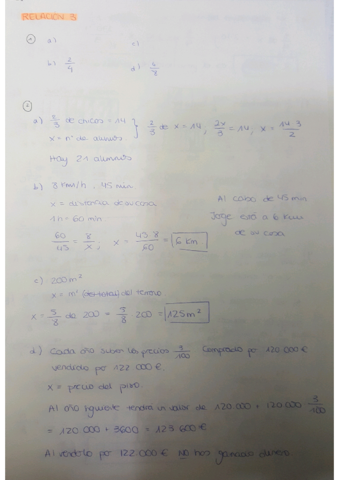 RELACIÓN 3
a) c)
b) 2/4 d)
a) 2/3 de chicos = 14 } 2/3 de x = 14, 2x/3 = 14, x = 14·3/2
x = nº de alumnos
Hay 21 alumnos
b) 8 km/h, 45 min
x = distancia de su casa
1 h = 60 min
60/45 = 8/x, x = 45·8/60 = 6 km
Al cabo de 45 min
Jorge está a 6 km
de su casa
c) 200 m²
x = m² del terreno
x = 5/8 de 200 = 5/8 200 = 125 m²
d) Cada año suben los precios 3/100 Comprado por 120.000 €
vendido por 122.000 €.
x = precio del piso.
Al año siguiente tendrá un valor de 120.000 + 120.000 3/100
= 120.000 + 3600 = 123.600 €
Al venderlo por 122.000 € NO hos ganado dinero.